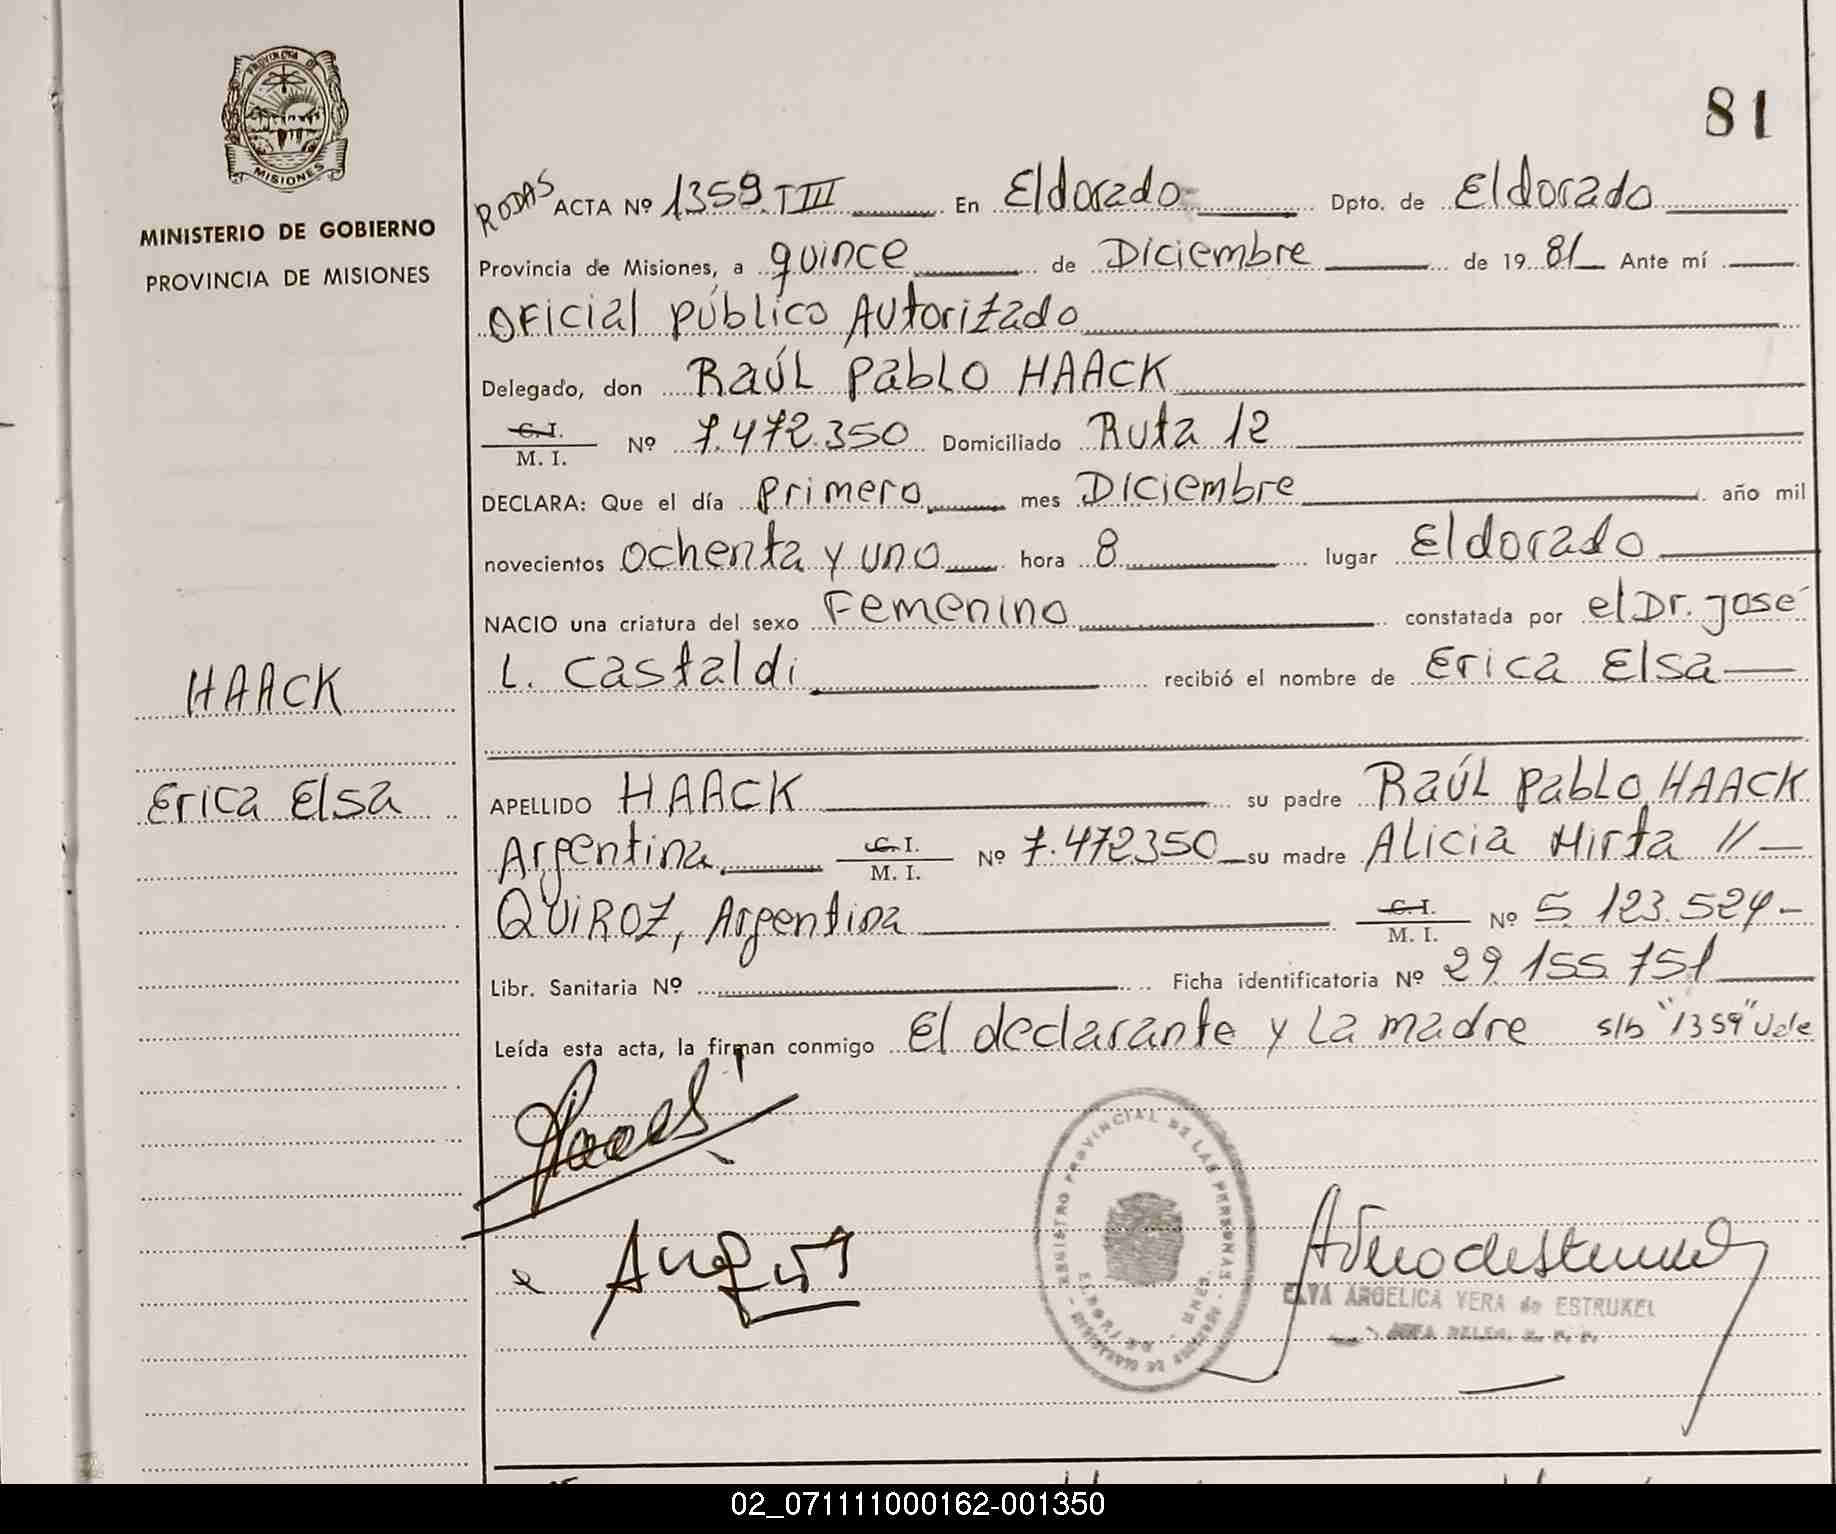 81
PROVINCIA DE
MISIONES
MINISTERIO DE GOBIERNO
PROVINCIA DE MISIONES
HAACK
Erica Elsa
RODAS ACTA Nº 1359 T III En Eldorado Dpto. de Eldorado
Provincia de Misiones, a quince de Diciembre de 19 81 Ante mí
Oficial Público Autorizado
Delegado, don Raúl Pablo HAACK
C. I.
M. I. Nº 7.472.350 Domiciliado Ruta 12
DECLARA: Que el día Primero mes Diciembre año mil
novecientos ochenta y uno hora 8 lugar Eldorado
NACIO una criatura del sexo Femenino constatada por el Dr. José
L. Castaldi recibió el nombre de Erica Elsa
APELLIDO HAACK su padre Raúl Pablo HAACK
Argentina C. I.
M. I. Nº 7.472350 su madre Alicia Mirta //
QUIROZ, Argentina C. I.
M. I. Nº 5.123.524
Libr. Sanitaria Nº Ficha identificatoria Nº 29.155.751
Leída esta acta, la firman conmigo El declarante y La madre s/b "1359" Vale
REGISTRO PROVINCIAL DE LAS PERSONAS
ELVA ANGELICA VERA de ESTRUKEL
02_071111000162-001350